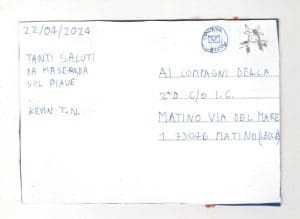 22/04/2024
TANTI SALUTI
DA MASERADA
SUL PIAVE
KEVIN T.N.
AI COMPAGNI DELLA
2ªD C/O I.C.
MATINO VIA DEL MARE
1 73046 MATINO (LECCE)